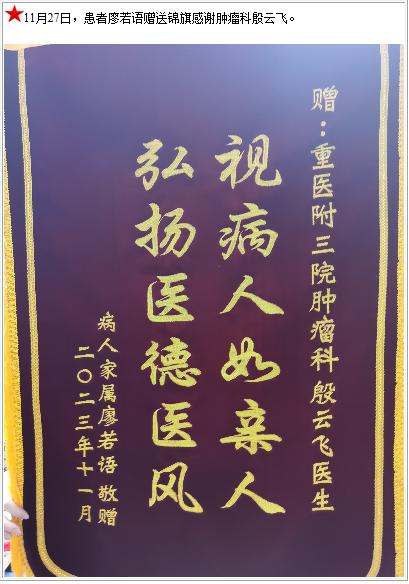 11月27日，患者廖若语赠送锦旗感谢肿瘤科殷云飞。
赠：重医附三院肿瘤科殷云飞医生
视病人如亲人
弘扬医德医风
病人家属廖若语 敬赠
二〇二三年十一月